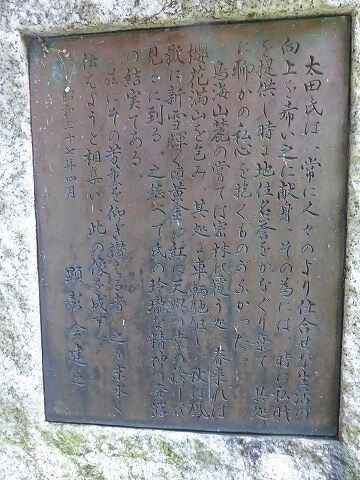 太田氏は、常に人々のより仕合せな生活の
向上を希い之に献身、その為には、時に私財
を提供し時に地位名誉をかなぐり棄て、其処
に聊かの私心を抱くものがなかった。
鳥海山麓の嘗ては密林に覆う処、春来れば
櫻花満山を包み、其処に車輌馳駆し、秋は鳳
に新雪輝く
見るに到る。之総べて氏の玲瓏な精神の
の結実である
茲にその芳香を仰ぎ讃える者、之を永く
伝えようと相集い、此の像を成す。
三十七年四月
顕彰会建之